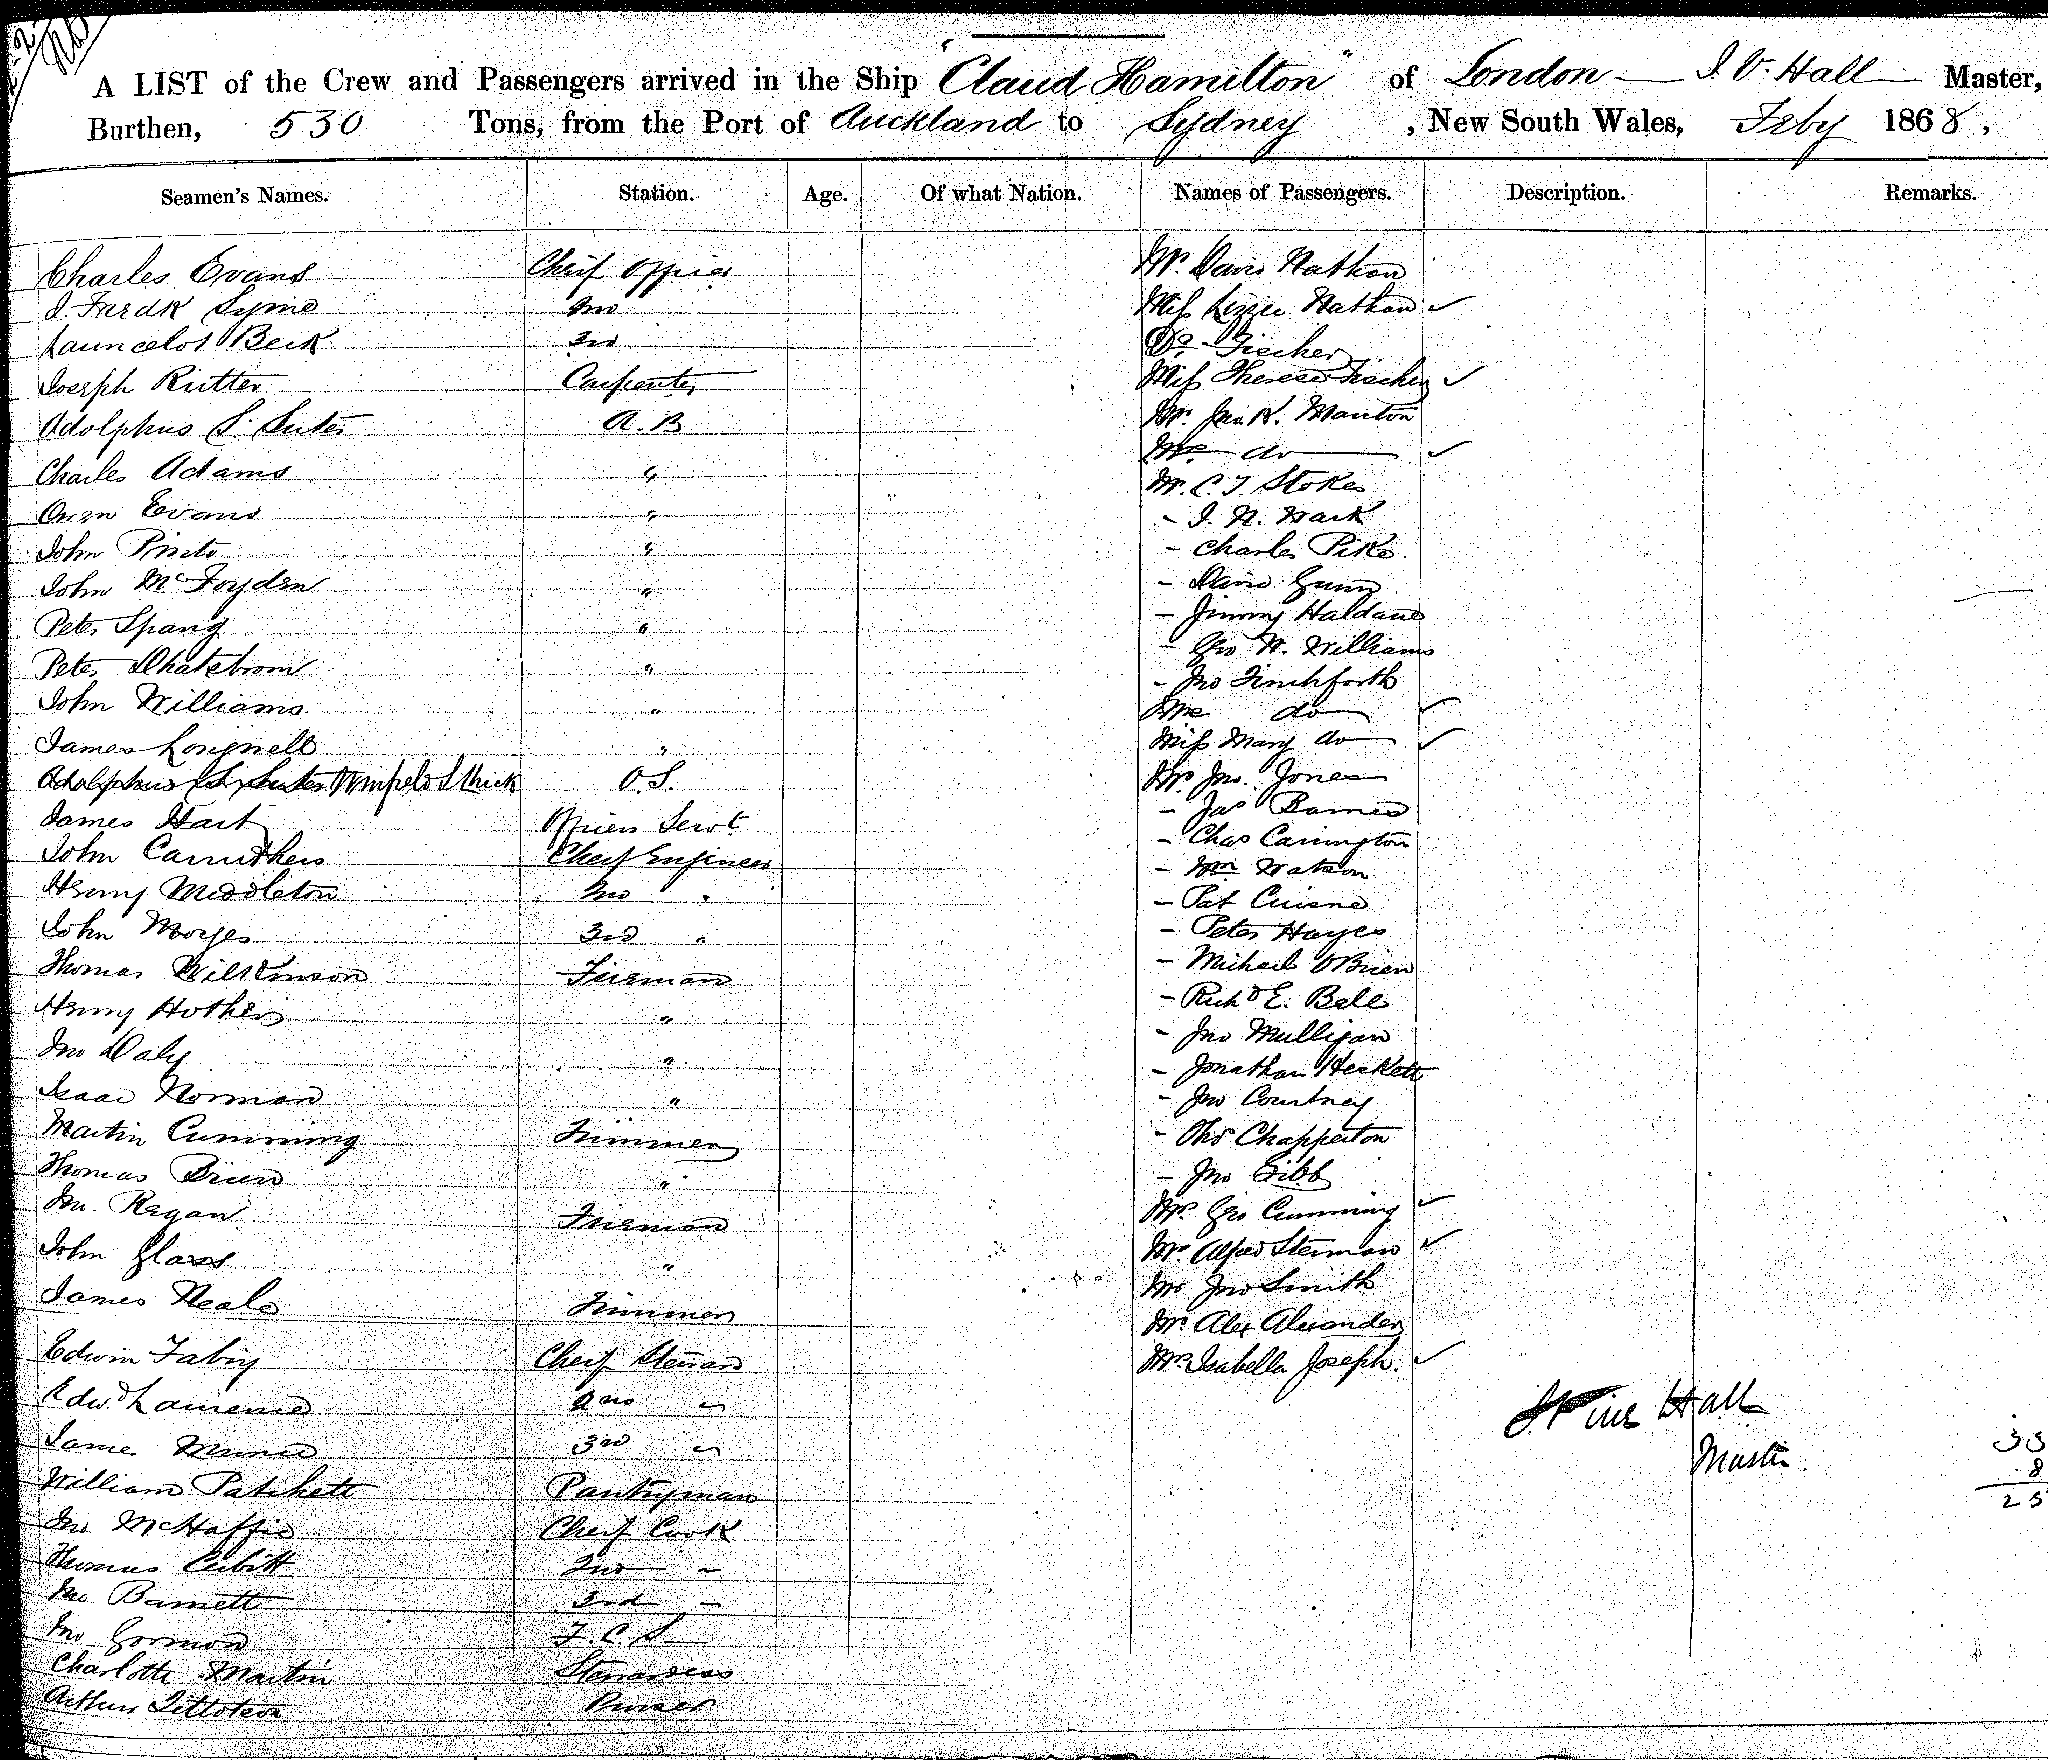 A LIST of the Crew and Passengers arrived in the Ship "Claud Hamilton" of London J. V. Hall Master,
Burthen, 530 Tons, from the Port of Auckland to Sydney, New South Wales, Feby 1868,
Seamen's Names. Station. Age. Of what Nation. Names of Passengers. Description. Remarks.
Charles Evans Cheif Officer Mr. Davis Nathan
J. Fredk Syme 2nd Miss Lizzie Nathan ✓
Launcelot Beck 3rd Dr. Fischer
Joseph Rutter Carpenter Miss Therese Fischer ✓
Adolphus S. Suter A. B Mr. Jas. K. Manton
Charles Adams " Mrs do ✓
Owen Evans " Mr. C. J Stokes
John Pinto " - J. N. Wark
John McFoyden " - Charles Pike
Peter Spang " - David Gunn
Peter " - Jimmy Haldane
John Williams " - Geo N. Williams
James Longwell " - Jno Finchforth
O.S. Mrs do ✓
James Hart Officers Servt Miss Mary do ✓
John Carruthers Cheif Engineer Mr Jno. Jones
Henry Middleton 2nd " - Jas Barnes
John Moyes 3rd " - Chas Carrington
Thomas Wilkinson Fireman - Wm Watson
Henry Hother " - Pat
Jno Daly " - Peter Hayes
Isaac Norman " - Michael O'Brien
Martin Cumming Trimmer - Richd E. Bell
Thomas Brien " - Jno Mulligan
Jno. Regan Fireman - Jonathan Heskett
John Glass " - Jno Courtney
James Neale Trimmer - Chapperton
Edwin Fabry Cheif Steward - Jno Gibb
Edwd Lawrence 2nd " Mrs Geo Cumming ✓
James 3rd " Mrs Alfred Steinman ✓
William Patchett Pantryman Mr Jno Smith
Jno McHaffie Cheif Cook Mr Alex Alexander
Thomas Cubitt 2nd " Mrs Isabella Joseph. ✓
Jno Barnett 3rd "
Jno Gorman F. C. S.
Charlotte Martin Stewardess
Arthur Purser
J Vine Hall
Master
33
8
25